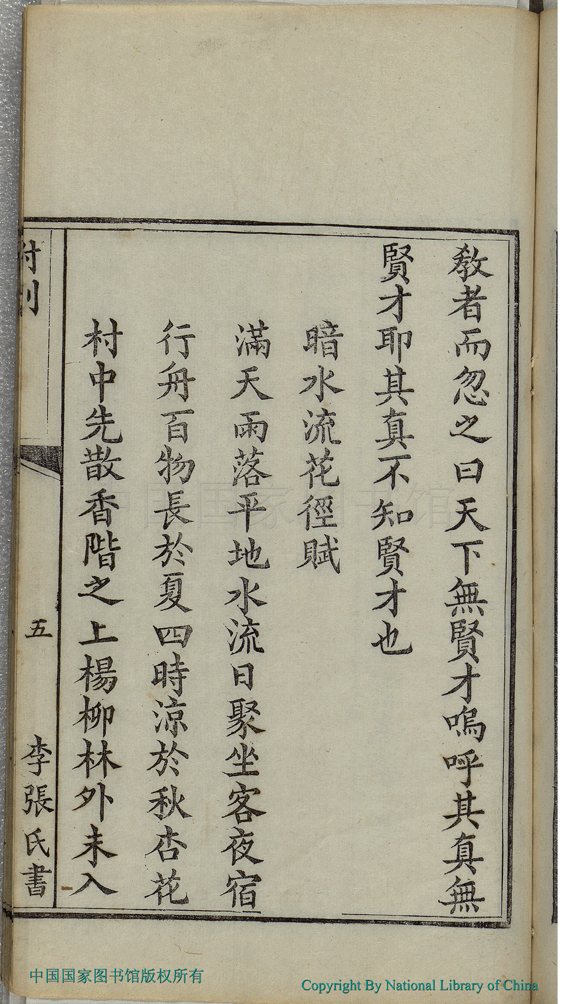 教者而忽之曰天下無賢才嗚呼其真無
賢才耶其真不知賢才也
暗水流花徑賦
滿天雨落平地水流日聚坐客夜宿
行舟百物長於夏四時涼於秋杏花
村中先散香階之上楊柳林外未入
附刊
五
李張氏書
中国国家图书馆
中国国家图书馆版权所有
Copyright By National Library of China